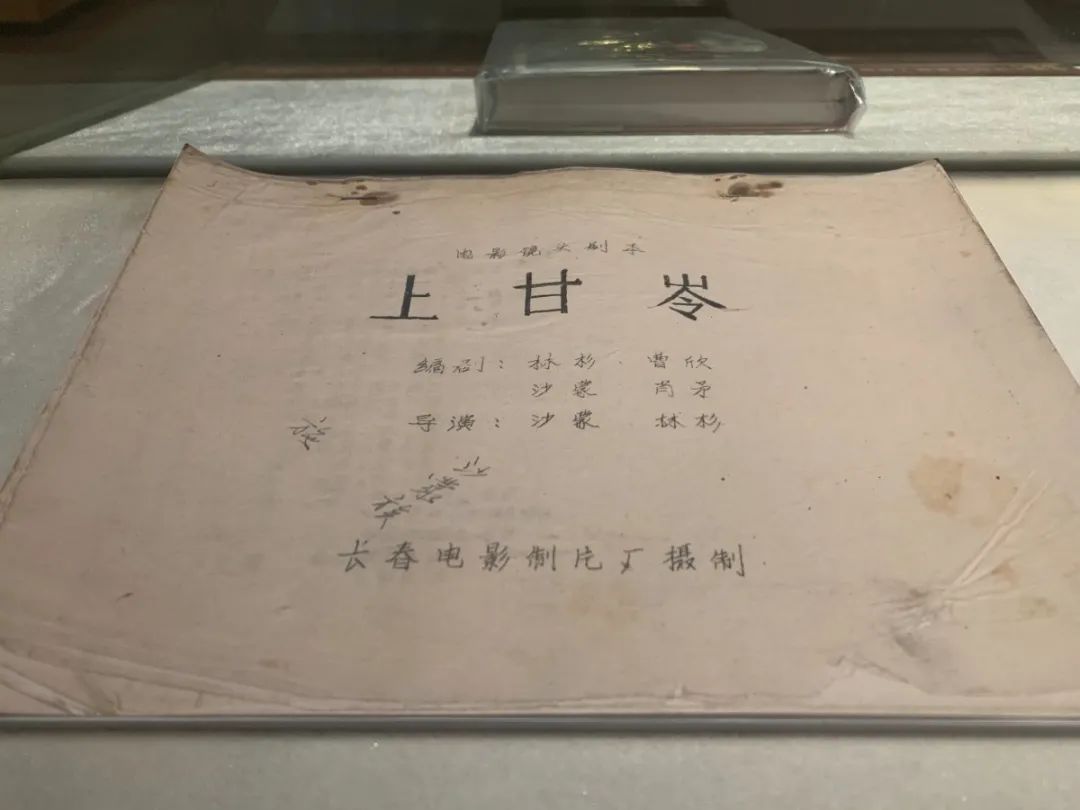 电影镜头剧本
上甘岺
编剧：林杉·曹欣
沙蒙 肖矛
导演：沙蒙 林杉
长春电影制片厂摄制